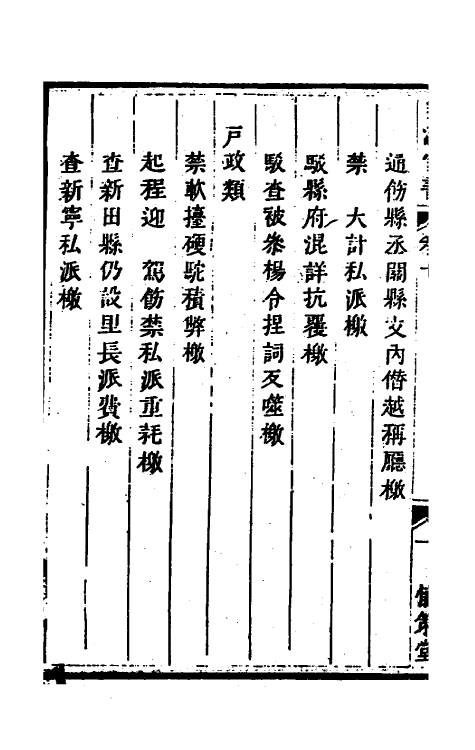 通飭縣丞關縣文內僭越稱廳檄
禁　大計私派檄
駁縣府混詳抗覆檄
駁查被叅楊令捏詞反噬檄
戶政類
禁軟擡硬駝積弊檄
起程迎　駕飭禁私派重耗檄
查新田縣仍設里長派費檄
查新寧私派檄